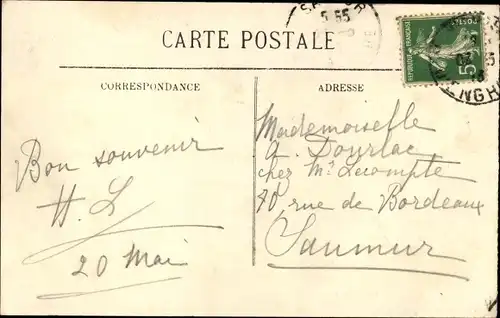 CARTE POSTALE
CORRESPONDANCE
ADRESSE
REPUBLIQUE FRANÇAISE
POSTES
5c
Bon souvenir
H. L
20 Mai
Mademoiselle
a. Dourlac
chez Mr Lecompte
70, rue de Bordeaux
Saumur